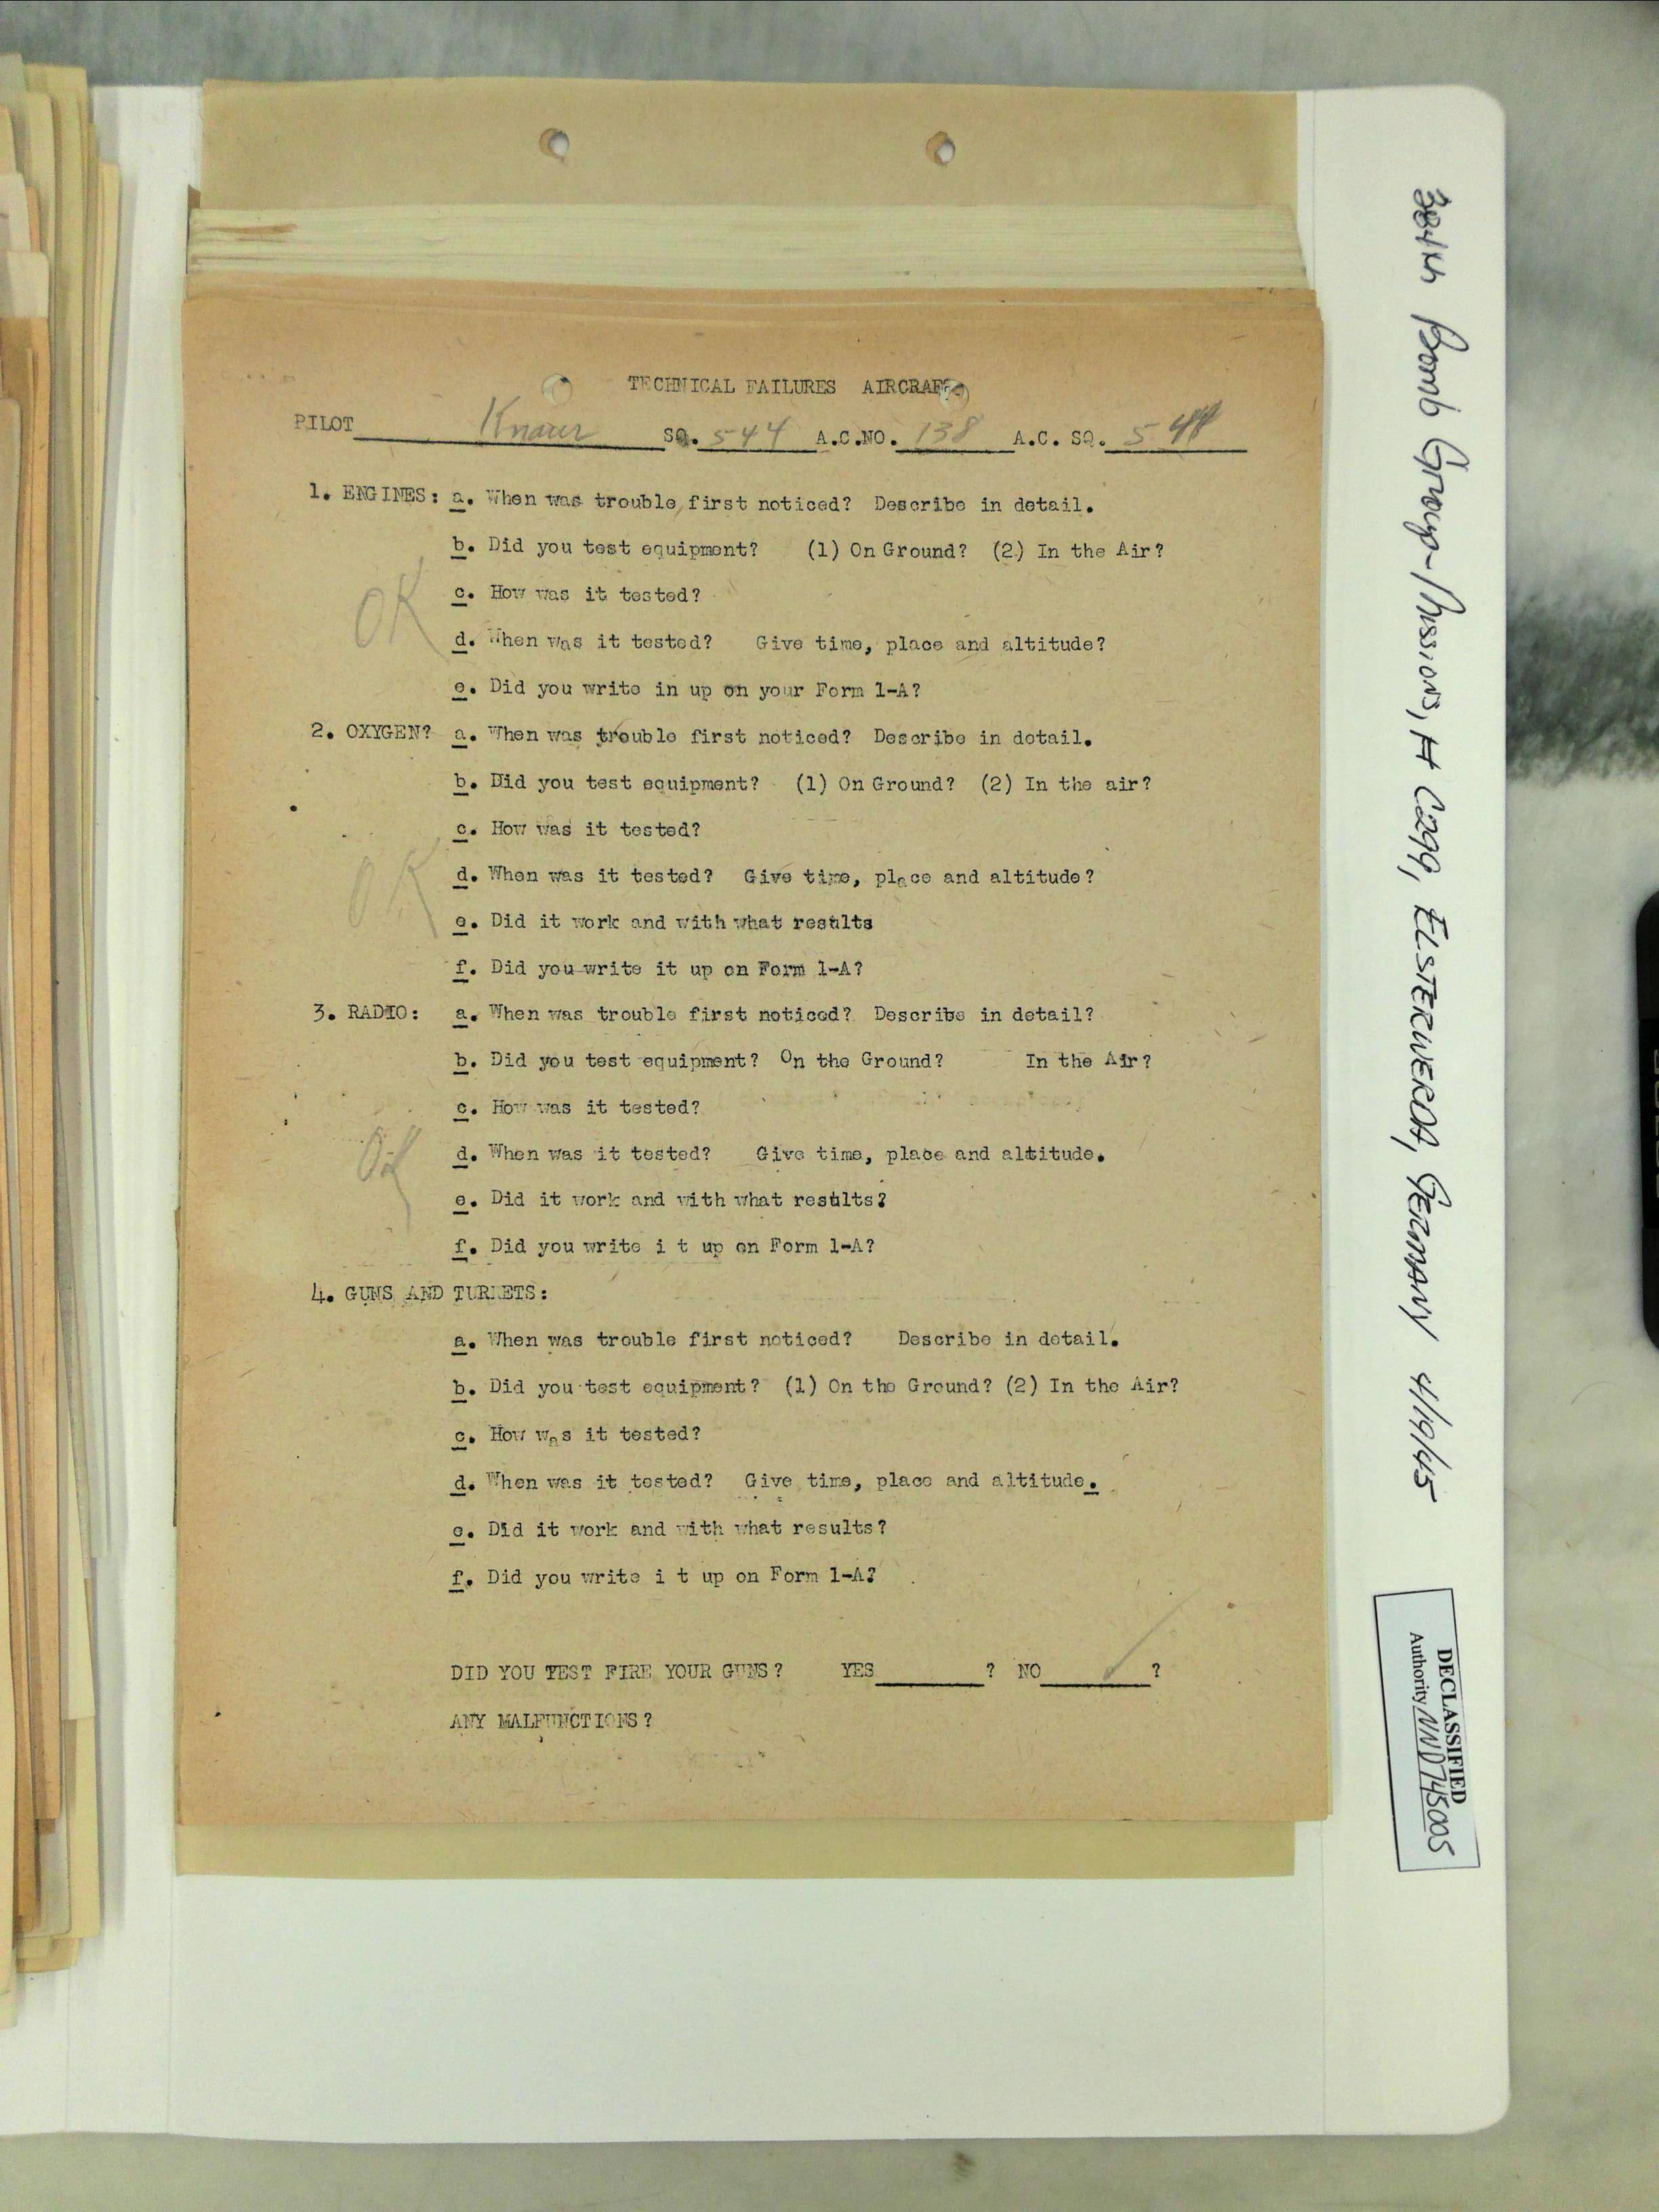 TECHNICAL FAILURES AIRCRAFT
PILOT Knaur SQ. 544 A.C.NO. 138 A.C. SQ. 544
1. ENGINES: a. When was trouble first noticed? Describe in detail.
b. Did you test equipment? (1) On Ground? (2) In the Air?
c. How was it tested?
OK
d. When was it tested? Give time, place and altitude?
e. Did you write in up on your Form 1-A?
2. OXYGEN? a. When was trouble first noticed? Describe in detail.
b. Did you test equipment? (1) On Ground? (2) In the air?
c. How was it tested?
OK
d. When was it tested? Give time, place and altitude?
e. Did it work and with what results
f. Did you write it up on Form 1-A?
3. RADIO: a. When was trouble first noticed? Describe in detail?
b. Did you test equipment? On the Ground? In the Air?
c. How was it tested?
OK
d. When was it tested? Give time, place and altitude.
e. Did it work and with what results?
f. Did you write i t up on Form 1-A?
4. GUNS AND TURRETS:
a. When was trouble first noticed? Describe in detail.
b. Did you test equipment? (1) On the Ground? (2) In the Air?
c. How was it tested?
d. When was it tested? Give time, place and altitude.
e. Did it work and with what results?
f. Did you write i t up on Form 1-A?
DID YOU TEST FIRE YOUR GUNS? YES ? NO ✓ ?
ANY MALFUNCTIONS?
384th Bomb Group-Missions, # C299, ELSTERWERDA, GERMANY 4/19/45
DECLASSIFIED
Authority NND745005